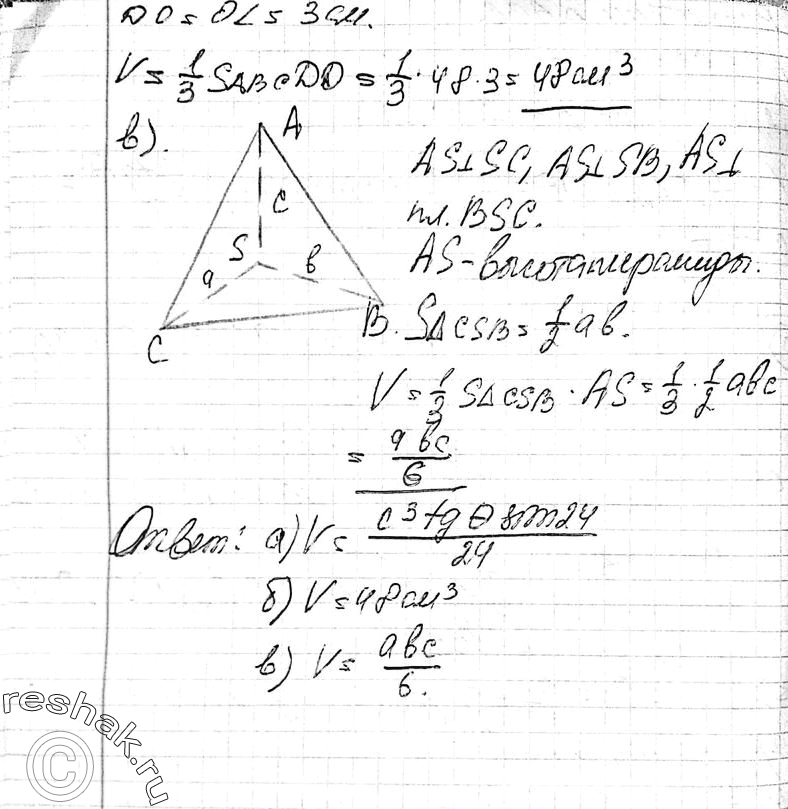 DO = OL = 3 см.
V = 1/3 SABC DO = 1/3 · 48 · 3 = 48 см³
в).
A
c
S
a
b
C
B.
AS⊥SC, AS⊥SB, AS⊥
пл. BSC.
AS - высота пирамиды.
S△CSB = 1/2 ab.
V = 1/3 S△CSB · AS = 1/3 · 1/2 abc
= abc/6
Ответ: а) V = c³ tg θ sin 24/24
б) V = 48 см³
в) V = abc/6.
reshak.ru
©